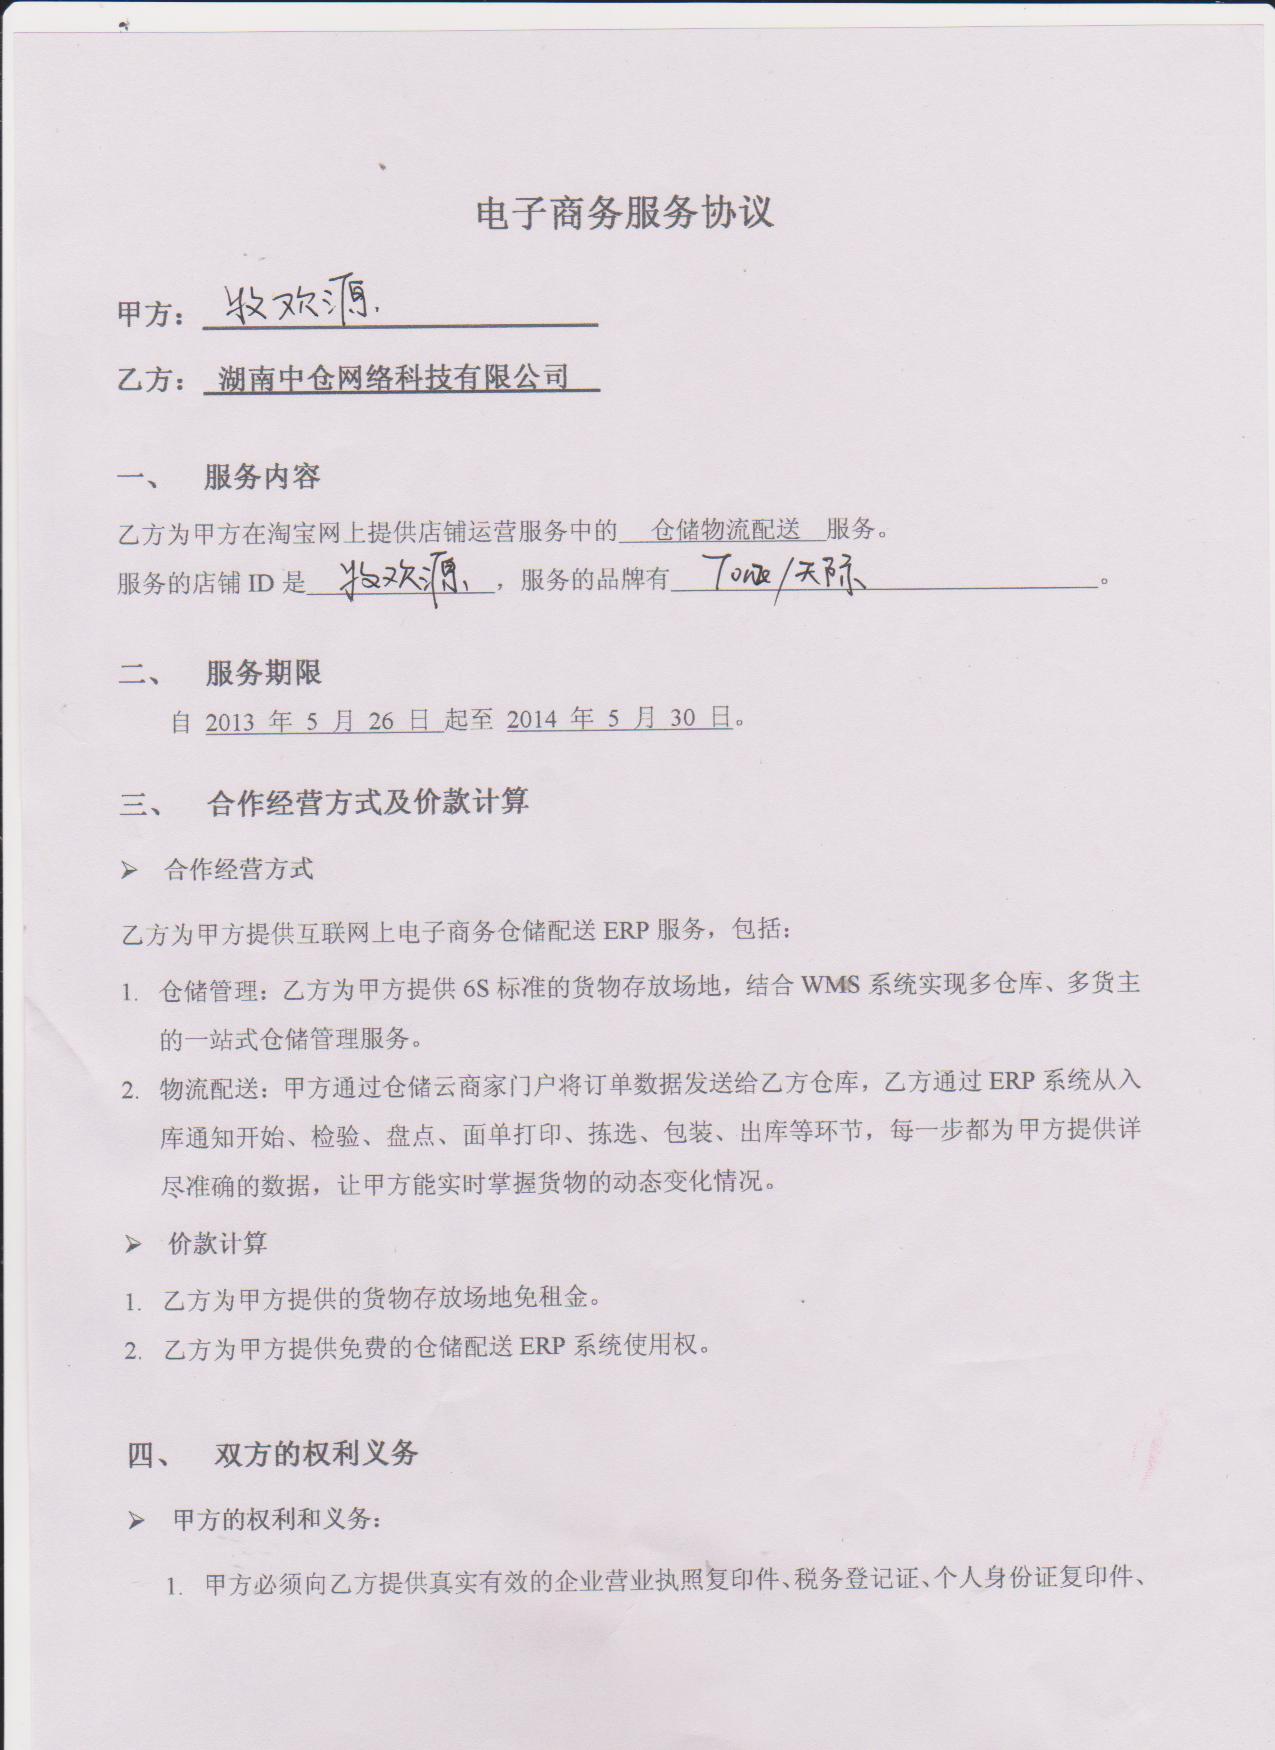 电子商务服务协议
甲方：牧欢源.
乙方：湖南中仓网络科技有限公司
一、 服务内容
乙方为甲方在淘宝网上提供店铺运营服务中的 仓储物流配送 服务。
服务的店铺 ID 是 牧欢源 ，服务的品牌有 Tonze/天际 。
二、 服务期限
自 2013 年 5 月 26 日 起至 2014 年 5 月 30 日。
三、 合作经营方式及价款计算
➢ 合作经营方式
乙方为甲方提供互联网上电子商务仓储配送 ERP 服务，包括：
1. 仓储管理：乙方为甲方提供 6S 标准的货物存放场地，结合 WMS 系统实现多仓库、多货主
的一站式仓储管理服务。
2. 物流配送：甲方通过仓储云商家门户将订单数据发送给乙方仓库，乙方通过 ERP 系统从入
库通知开始、检验、盘点、面单打印、拣选、包装、出库等环节，每一步都为甲方提供详
尽准确的数据，让甲方能实时掌握货物的动态变化情况。
➢ 价款计算
1. 乙方为甲方提供的货物存放场地免租金。
2. 乙方为甲方提供免费的仓储配送 ERP 系统使用权。
四、 双方的权利义务
➢ 甲方的权利和义务：
1. 甲方必须向乙方提供真实有效的企业营业执照复印件、税务登记证、个人身份证复印件、